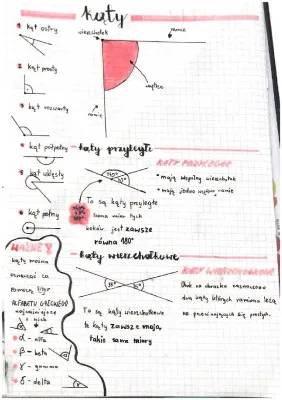 kąty
1 kąt ostry
wierzchołek
ramię
2 kąt prosty
wnętrze
3 kąt rozwarty
ramię
kąt półpełny
kąty przyległe
kąt wklęsły
• mają wspólny wierzchołek
• mają jedno wspólne ramię
kąt pełny
To są kąty przyległe
Suma miar tych
kątów jest zawsze
równa 180°
WAŻNE!
kąty wierzchołkowe
kąty można
oznaczać za
pomocą liter
ALFABETU GRECKIEGO
najważniejsze
z nich
To są kąty wierzchołkowe
te kąty zawsze mają
takie same miary
Obok na obrazku zaznaczono
dwa kąty których ramiona leżą
na przecinających się prostych.
α - alfa
β - beta
γ - gamma
δ - delta